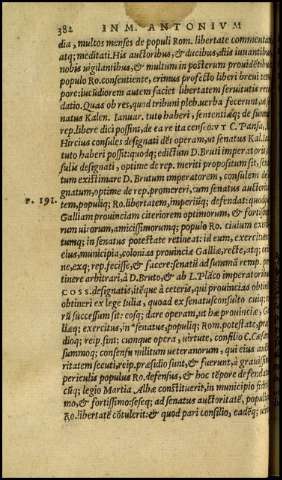 382 IN M. ANTONIVM
dia, multos menses de populi Rom. libertate commentatus
atq; meditati. His auctoribus, & ducibus, diis iuvantibus
nobis vigilantibus, & multum in posterum providentibus
populo Ro. consentiente, erimus profecto liberi brevi tem
pore: iucundiorem autem faciet libertatem servitutis recor
datio. Quas ob res, quod tribuni pleb. verba fecerunt, uti se
natus Kalen. Ianuar. tuto haberi, sententiaq; de summa
rep. libere dici possint, de ea re ita censeo. VT C. Pansa, A.
Hircius consules designati dēt operam, ut senatus Kal. Ian.
tuto haberi possit: quodq; edictum D. Bruti imperatoris, con
sulis designati, optime de rep. meriti propositum sit, sena
tum existimare D. Brutum imperatorem, consulem desi
gnatum, optime de rep. promereri, cum senatus auctorita
P. 191. tem, populiq; Ro. libertatem, imperiūq; defendat: quodq;
Galliam provinciam citeriorem optimorum, & fortissimo
rum virorum, amicissimorumq; populo Ro. civium exerci
tumq; in senatus potestate retineat: id eum, exercitumq;
eius, municipia, colonias provinciæ Galliæ, recte, atq; ordi
ne, exq; rep. fecisse, & facere: senatū ad summā remp. per
tinere arbitrari, à D. Bruto, & ab L. Plāco imperatoribus
COSS. designatis, itēque à ceteris, qui provincias obtinent
obtineri ex lege Iulia, quoad ex senatusconsulto cuiq; eo
rū successum sit: eosq; dare operam, ut hæ provinciæ, Gal
liæq; exercitus, in senatus, populiq; Rom. potestate, præsi
dioq; reip. sint: cumque opera, virtute, consilio C. Cæsaris
summoq; consensu militum veteranorum, qui eius aucto
ritatem secuti, reip. præsidio sunt, & fuerunt, à gravissimis
periculis populus Ro. defensus, & hoc tēpore defendatur:
cūq; legio Martia Albæ constiterit, in municipio fidelissi
mo, & fortissimo: seseq; ad senatus auctoritatē, populiq;
Ro. libertatē cōtulerit: & quod pari consilio, eadēq; virtu